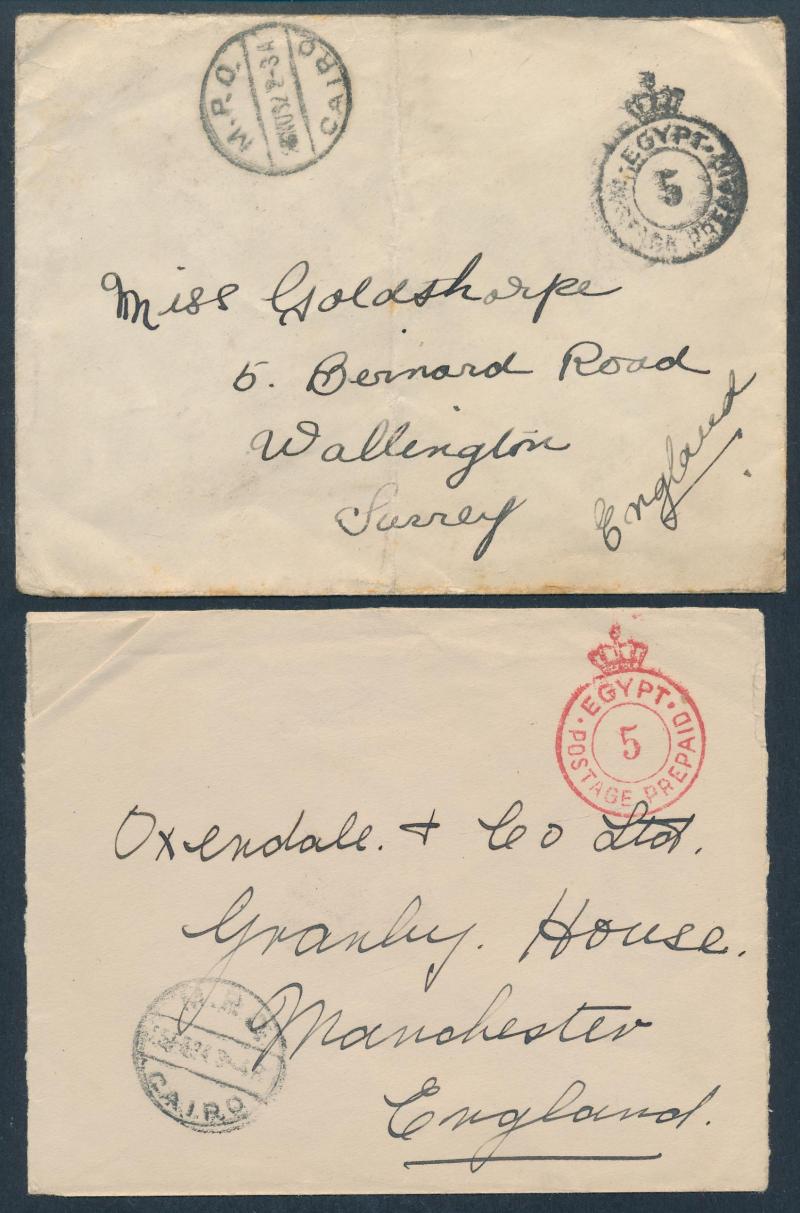 M.P.O.
CAIRO
EGYPT
5
POSTAGE PREPAID
Miss Goldsthorpe
5. Bernard Road
Wallington
Surrey
England
EGYPT
5
POSTAGE PREPAID
Oxendale. & Co Ltd.
Granby. House.
Manchester
England.
CAIRO